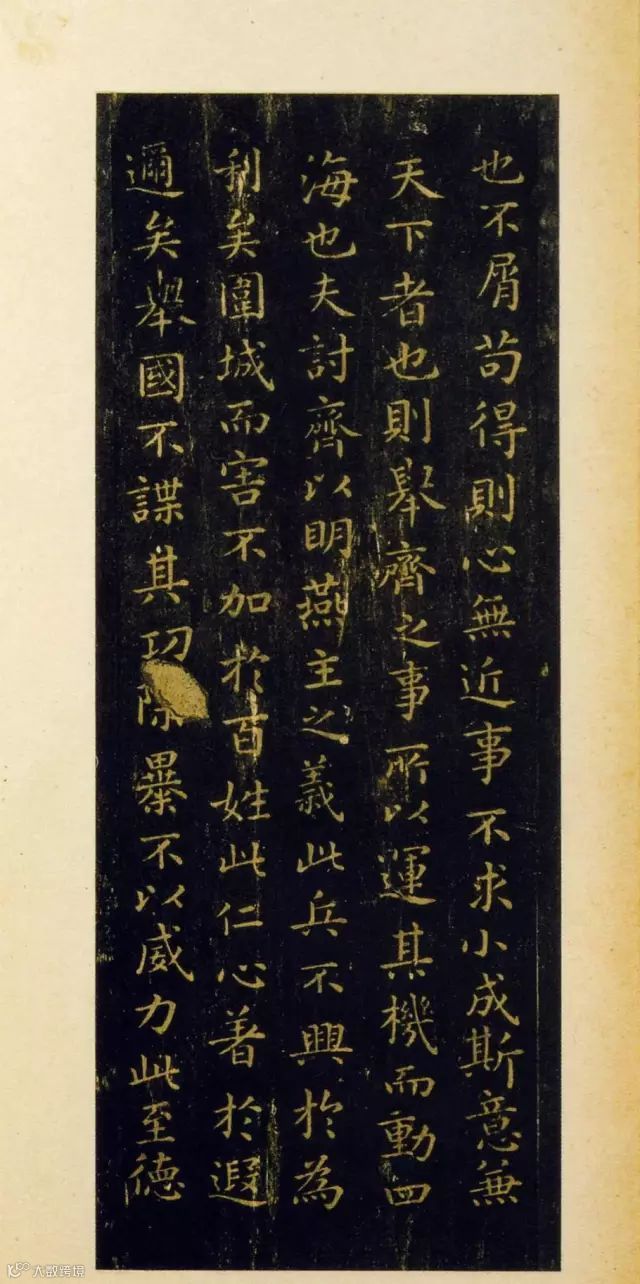 也不屑苟得則心無近事不求小成斯意無
天下者也則舉齊之事所以運其機而動四
海也夫討齊以明燕主之義此兵不興於為
利矣圍城而害不加於百姓此仁心著於遐
邇矣舉國不謀其功除暴不以威力此至德
大数跨境